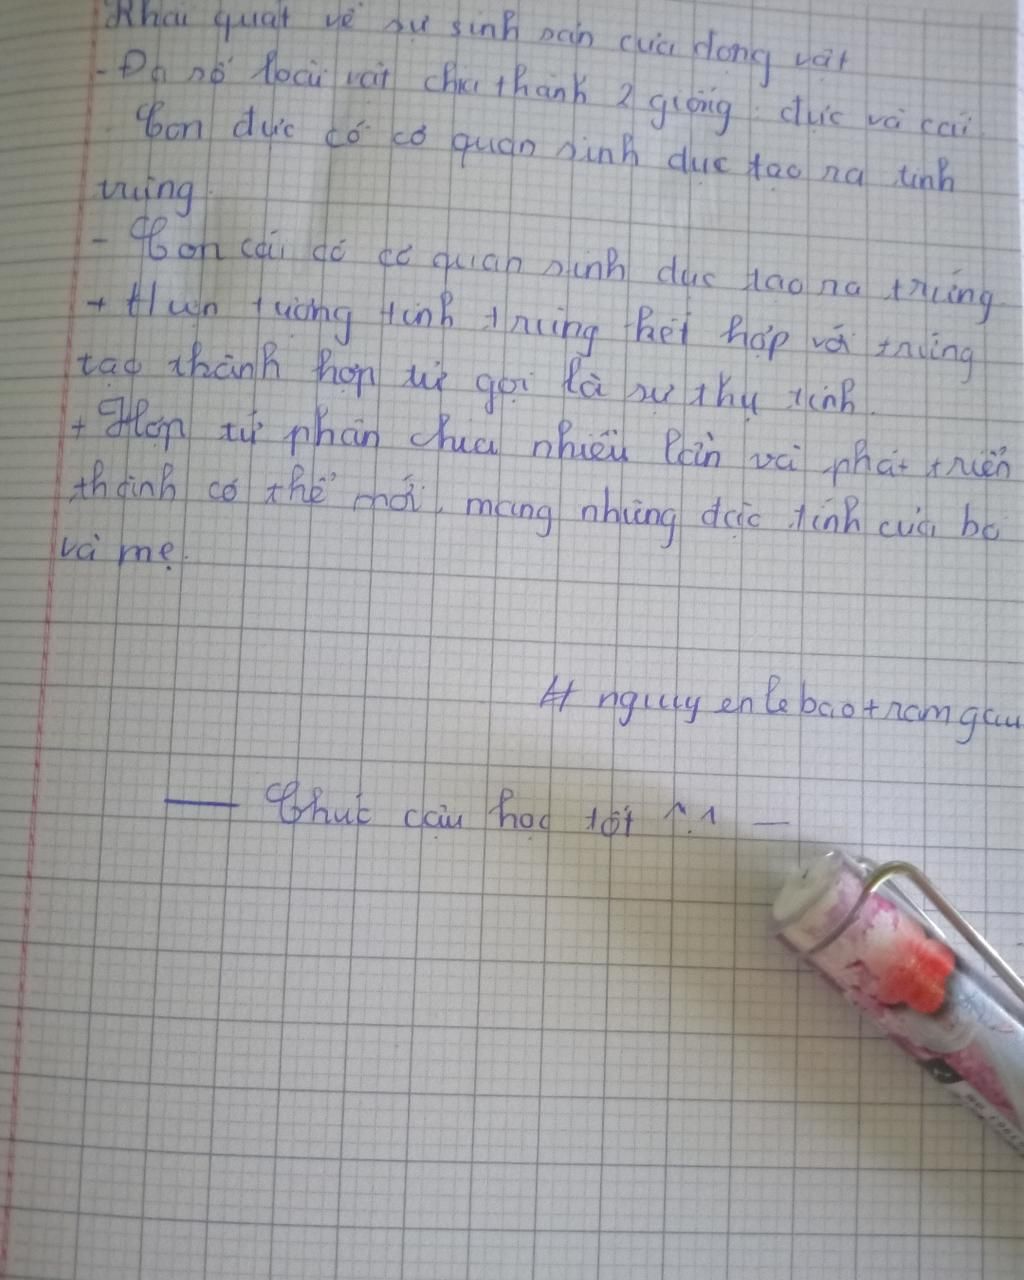 Khái quát về sự sinh sản của động vật
- Đa số loài vật chia thành 2 giống: đực và cái
Con đực có cơ quan sinh dục tạo ra tinh
trùng.
- Con cái có cơ quan sinh dục tạo ra trứng
+ Hiện tượng tinh trùng kết hợp với trứng
tạo thành hợp tử gọi là sự thụ tinh.
+ Hợp tử phân chia nhiều lần và phát triển
thành cơ thể mới, mang những đặc tính của bố
và mẹ.
# nguyenlebaotramgau
— Chúc cậu học tốt ^.^ —